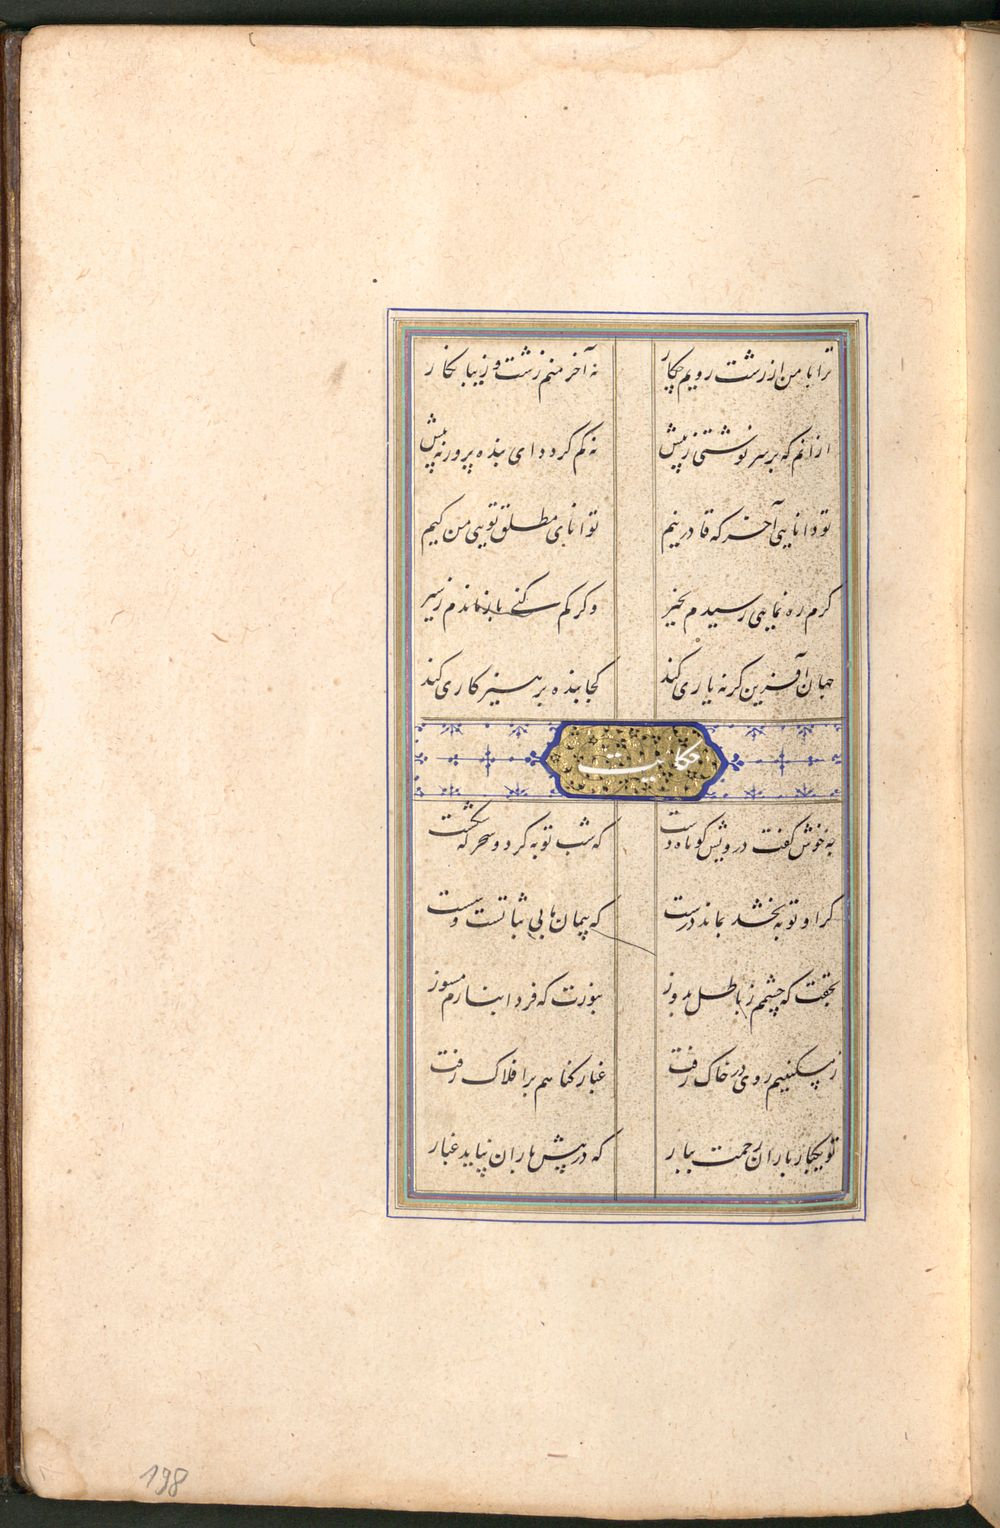 ترا با من از زشت رویم چکار نه آخر منم زشت و زیبا نکار
ازانم که بر سر نوشتی ز پیش نه کم کردد ای بنده پرور نه بیش
تو دانایی آخر که قادر نیم توانای مطلق تویی من کیم
کرم ره نمایی رسیدم بخیر وکر کم کنی باز ماندم ز سیر
جهان آفرین کر نه یاری کند کجا بنده پرهیز کاری کند
حکایت
چه خوش کفت درویش کوتاه دست که شب توبه کرد و سحرکه شکست
کر او توبه بخشد بماند درست که پیمان ما بی ثباتست و سست
بحقت که چشمم ز باطل بدوز بنورت که فردا بنارم مسوز
ز مسکینیم روی در خاک رفت غبار کناهم بر افلاک رفت
تو یکبار باران رحمت ببار که در پیش باران نپاید غبار
198